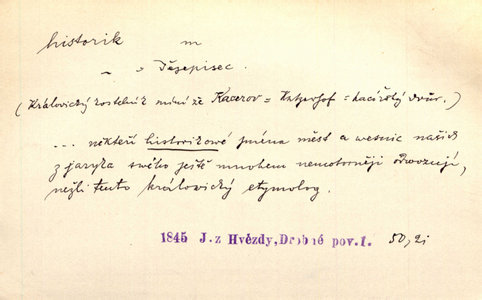 historik m
~ = Dějepisec.
(Královický kostelník míní že Kacerov = Katzerhof = kacířský dvůr.)
... někteří historikové jména měst a wesnic našich
z jazyka swého ještě mnohem nemotorněji odwozují,
nežli tento královický etymolog.
1845 J. z Hvězdy, Drobné pov. I. 50, 21